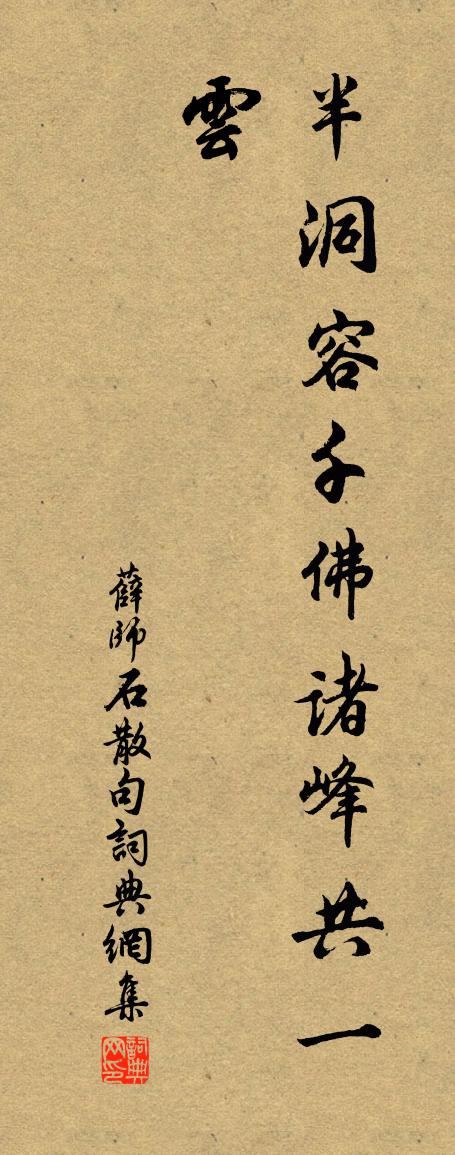 半洞容千佛諸峰共一
雲
薛師石散句詞典網集
詞典
网印